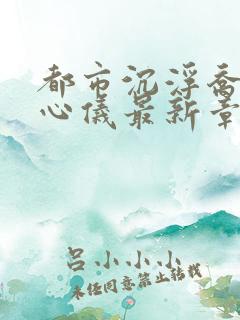 都市沉浮乔
心仪最新章
吕小小小
未经同意禁止转载